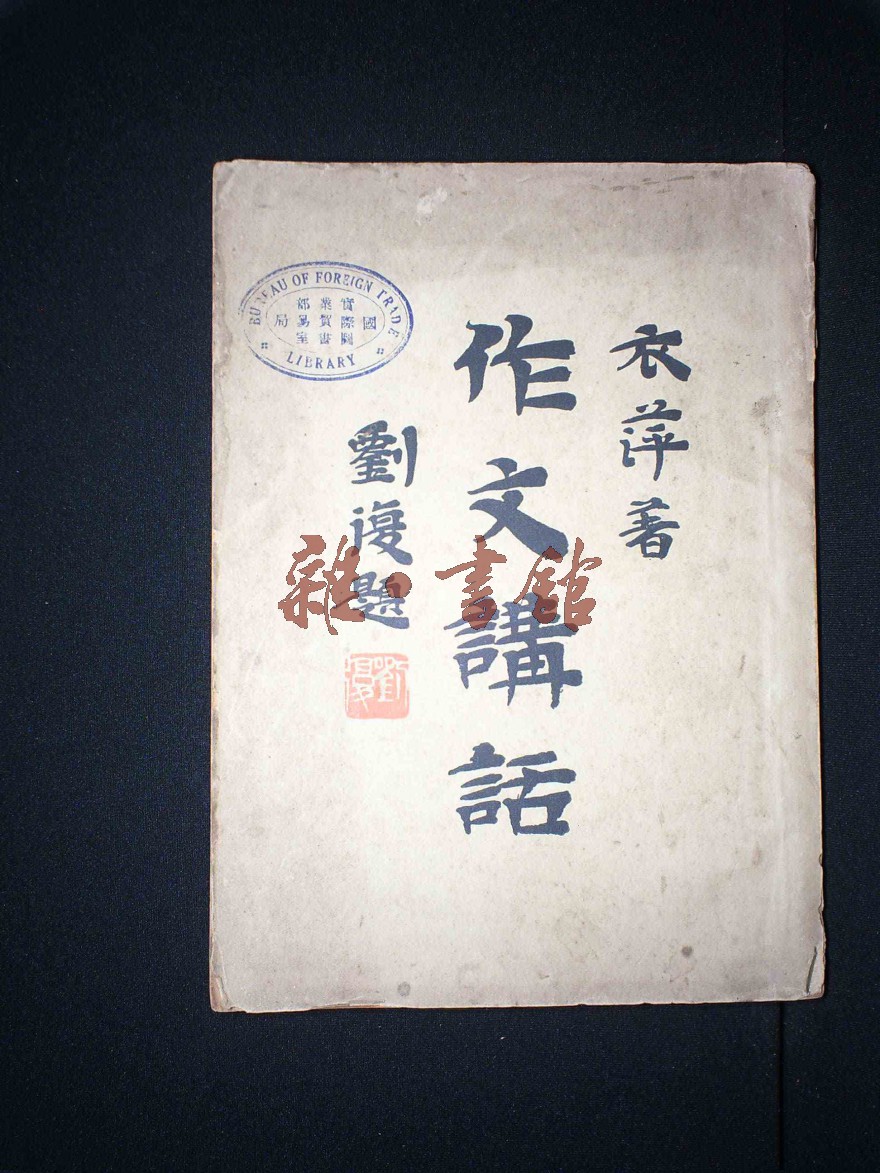 衣萍著
作文講話
劉復題
劉復
BUREAU OF FOREIGN TRADE
實業部
國際貿易局
圖書室
LIBRARY
雜·書館